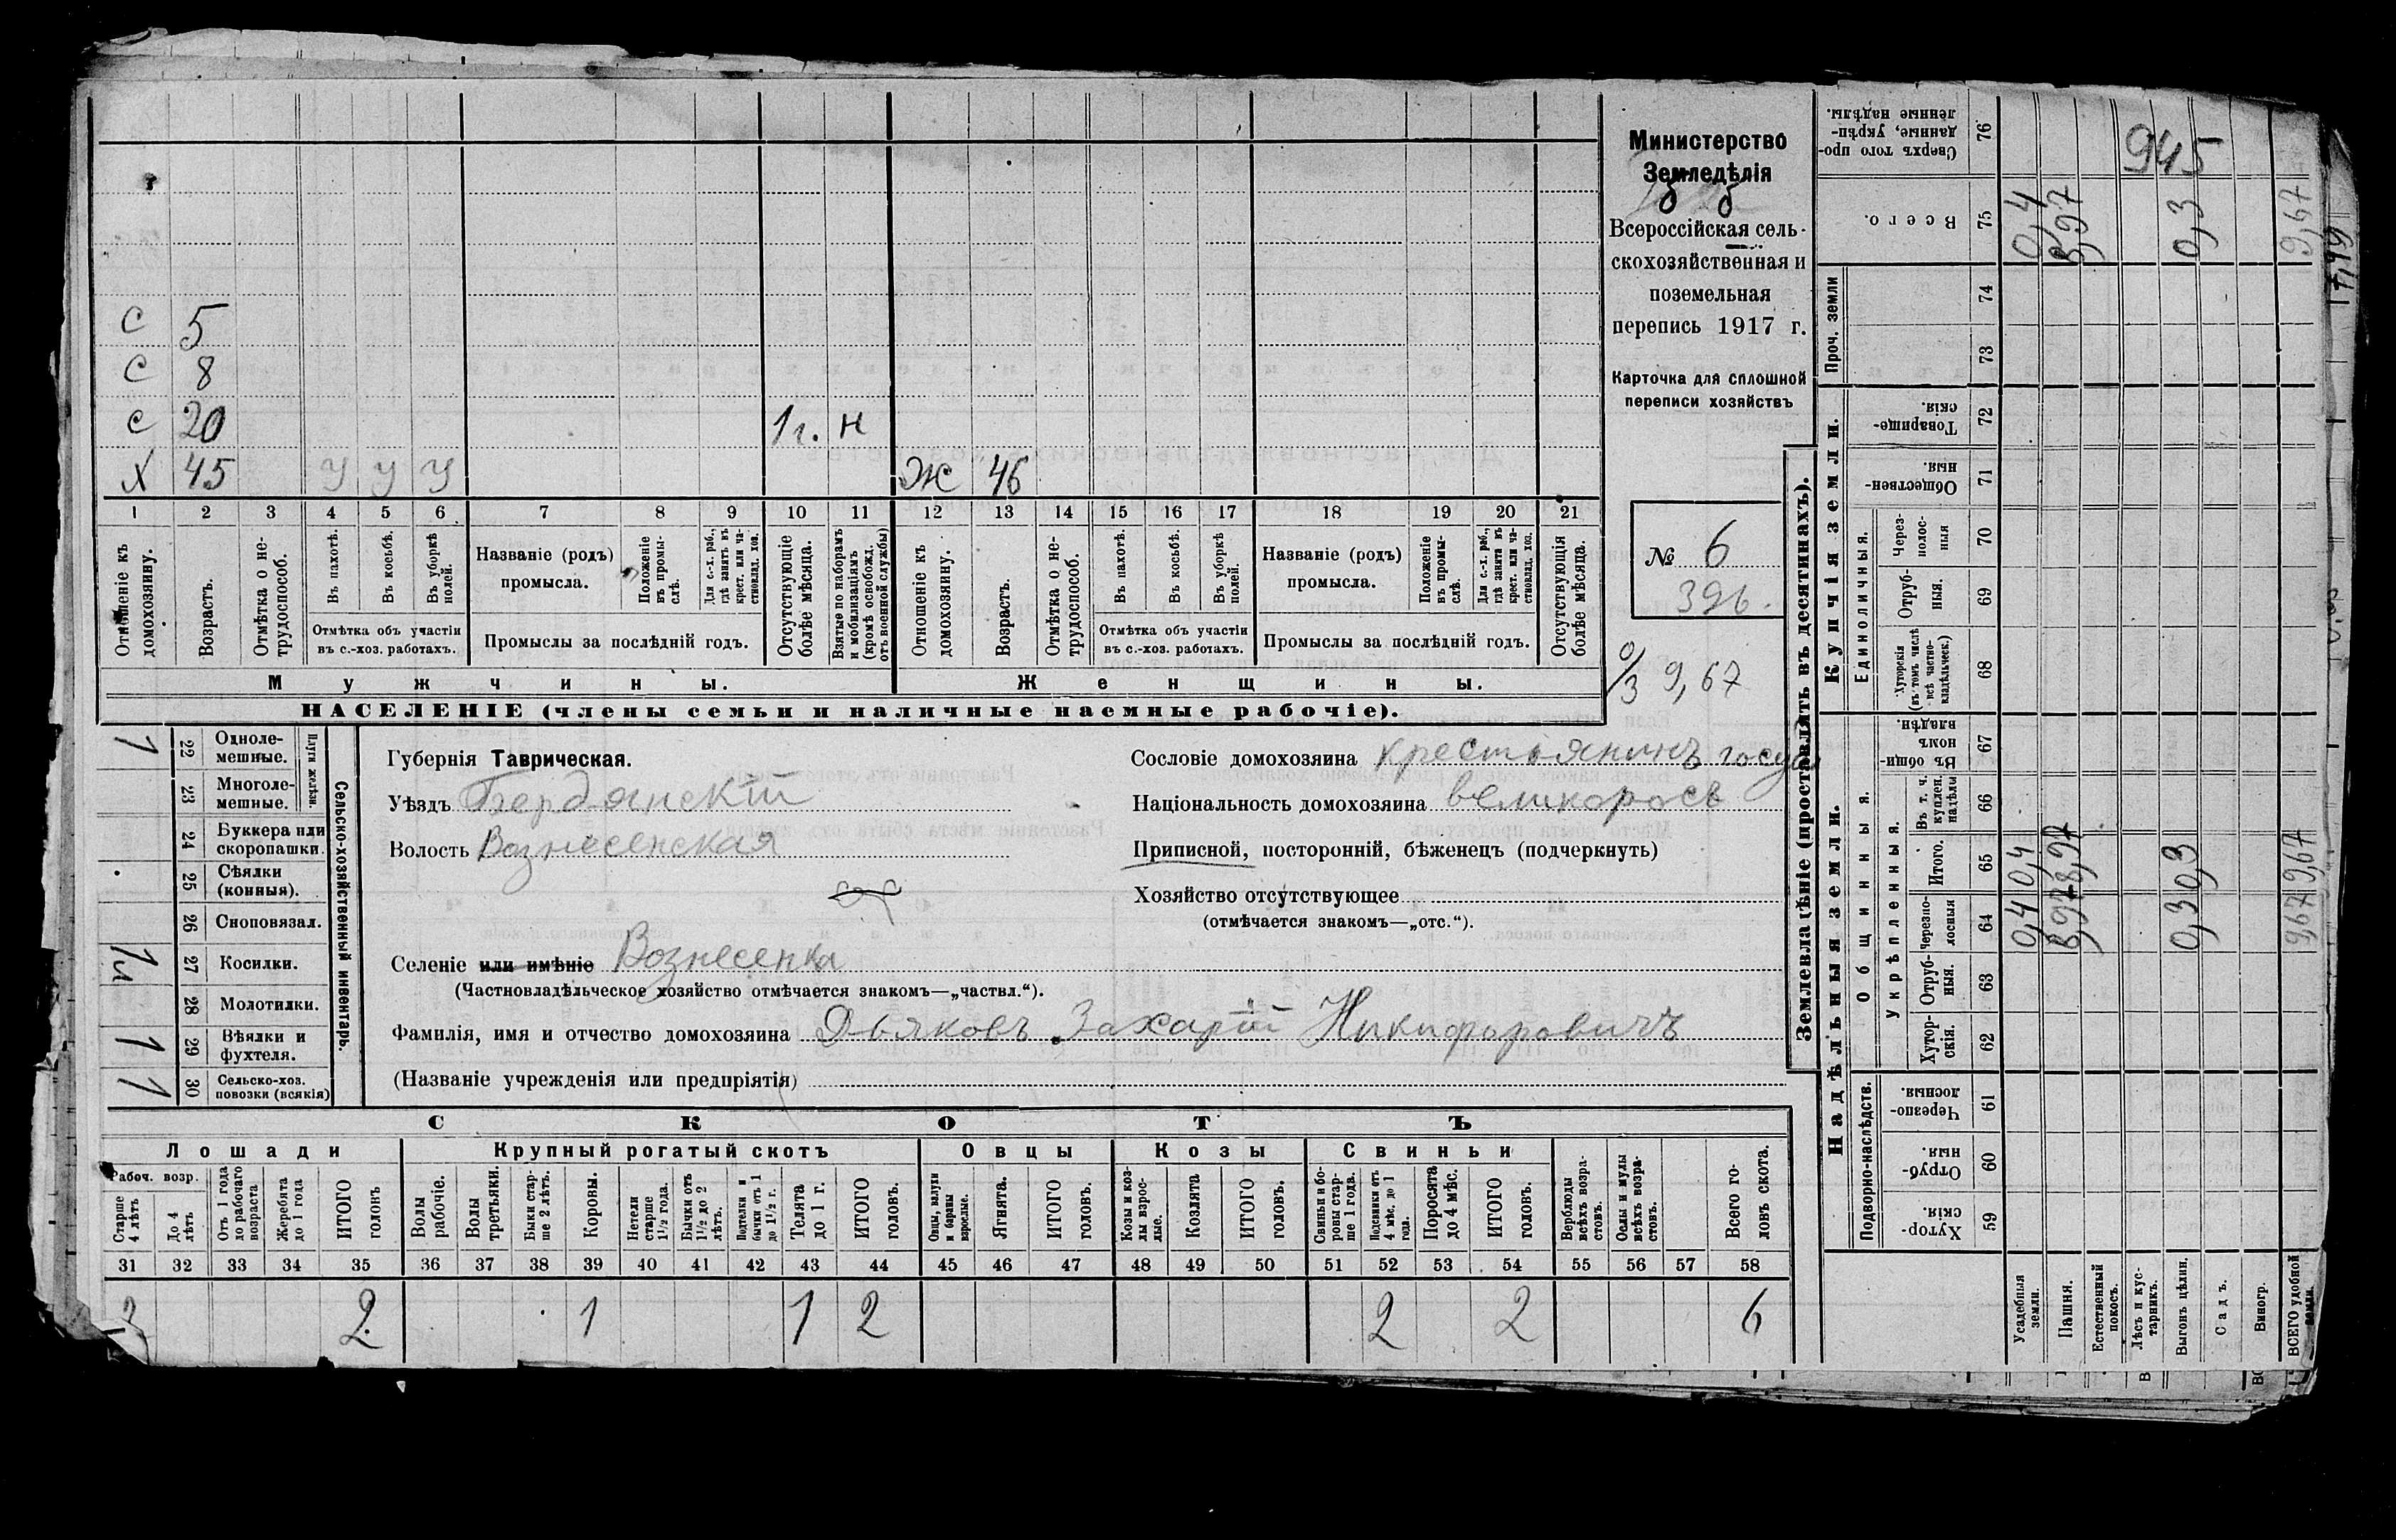 Министерство
Земледѣлія
Всероссійская сель-
скохозяйственная и
поземельная
перепись 1917 г.
Карточка для сплошной
переписи хозяйствъ
№ 6
396.
9,67
С 5
С 8
С 20 1 г. н
Х 45 У У У Ж 46
1 2 3 4 5 6 7 8 9 10 11 12 13 14 15 16 17 18 19 20 21
Отношеніе къ домохозяину.
Возрастъ.
Отмѣтка о не-трудоспособ.
Въ пахотѣ.
Въ косьбѣ.
Въ уборкѣ полей.
Отмѣтка объ участіи
въ с.-хоз. работахъ.
Названіе (родъ)
промысла.
Положеніе въ промы-слѣ.
Для с.-х. раб., гдѣ занятъ въ крест. или ча-стновлад. хоз.
Промыслы за послѣдній годъ.
Отсутствующіе болѣе мѣсяца.
Взятые по наборамъ и мобилизаціямъ (кромѣ освобожд. отъ военной службы)
Отношеніе къ домохозяину.
Возрастъ.
Отмѣтка о не-трудоспособ.
Въ пахотѣ.
Въ косьбѣ.
Въ уборкѣ полей.
Отмѣтка объ участіи
въ с.-хоз. работахъ.
Названіе (родъ)
промысла.
Положеніе въ промы-слѣ.
Для с.-х. раб., гдѣ занята въ крест. или ча-стновлад. хоз.
Промыслы за послѣдній годъ.
Отсутствующія болѣе мѣсяца.
Мужчины. Женщины.
НАСЕЛЕНІЕ (члены семьи и наличные наемные рабочіе).
Сельско-хозяйственный инвентарь.
Плуги желѣзн.
1 22 Одноле-мешные.
23 Многоле-мешные.
24 Буккера или скоропашки.
25 Сѣялки (конныя).
26 Сноповязал.
27 Косилки.
28 Молотилки.
1 29 Вѣялки и фухтеля.
1 30 Сельско-хоз. повозки (всякія)
Губернія Таврическая.
Уѣздъ Бердянскій
Волость Вознесенская
Селеніе или имѣніе Вознесенка
(Частновладѣльческое хозяйство отмѣчается знакомъ—„частвл.“).
Фамилія, имя и отчество домохозяина Дьяковъ Захарій Никифоровичъ
(Названіе учрежденія или предпріятія)
Сословіе домохозяина крестьянинъ госуд
Національность домохозяина великороссъ
Приписной, посторонній, бѣженецъ (подчеркнуть)
Хозяйство отсутствующее
(отмѣчается знакомъ—„отс.“).
СКОТЪ
Лошади Крупный рогатый скотъ Овцы Козы Свиньи
Рабоч. возр.
Старше 4 лѣтъ
До 4 лѣтъ
Отъ 1 года до рабочаго возраста
Жеребята до 1 года
ИТОГО головъ
Волы рабочіе.
Волы третьяки.
Быки стар-ше 2 лѣтъ.
Коровы.
Нетели старше 1½ года.
Бычки отъ 1½ до 2 лѣтъ.
Подтелки и бычки отъ 1 до 1½ г.
Телята до 1 г.
ИТОГО головъ.
Овцы, валухи и бараны взрослые.
Ягнята.
ИТОГО головъ.
Козы и коз-лы взрос-лые.
Козлята
ИТОГО головъ.
Свиньи и бо-ровы стар-ше 1 года.
Подсвинки отъ 4 мѣс. до 1 года.
Поросята до 4 мѣс.
ИТОГО головъ.
Верблюды всѣхъ возра-стовъ.
Ослы и мулы всѣхъ возра-стовъ.
Всего го-ловъ скота.
31 32 33 34 35 36 37 38 39 40 41 42 43 44 45 46 47 48 49 50 51 52 53 54 55 56 57 58
2 2 1 1 2 2 2 6
Землевладѣніе (проставлять въ десятинахъ).
Надѣльныя земли. Купчія земли. Проч. земли
Подворно-наслѣдств.
Общинныя.
Укрѣпленныя.
Единоличныя.
Хутор-скія. 59
Отруб-ныя. 60
Черезпо-лосныя. 61
Хутор-скія. 62
Отруб-ныя. 63
Черезпо-лосныя 64
Итого. 65
Въ т. ч. куплен. надѣлы 66
Въ общи-номъ владѣн. 67
Хуторскія (въ томъ числѣ всѣ частно-владѣльческ.) 68
Отруб-ныя. 69
Через-полос-ныя 70
Обществен-ныя. 71
Товарище-скія. 72
73
74
Всего. 75
Сверхъ того про-данные, укрѣп-ленные надѣлы. 76
Усадебныя земли. 0,4 0,4 0,4
Пашня. 8,97 8,97 8,97
Естественный покосъ.
Лѣсъ и кус-тарникъ.
Выгонъ цѣлин. 0,3 0,3 0,3
Садъ.
Виногр.
ВСЕГО удобной земли. 9,67 9,67 9,67
945